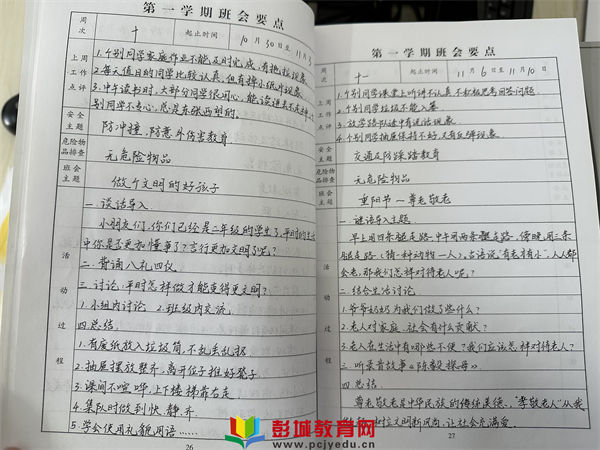 第一学期班会要点
周次
十
起止时间
10月30日至11月3
上周工作点评
1.个别同学家庭作业不能及时完成,有拖拉现象
2.每天值日的同学比较认真,但有掉小纸片现象
3.中午读书时,大部分同学很用心,能读进去
别同学不专心,总是东张西望的。
安全主题
防冲撞,防意外伤害教育
危险物品排查
无危险物品
班会主题
做个文明的好孩子
活动过程
一.谈话导入
小朋友们,你们已经是二年级的学生了,平时的生活
中你是否更加懂事了?言行更加文明了呢?
二.背诵八礼四仪
三.讨论:平时怎样做才能变得更文明?
1.小组内讨论 2.班级内交流
四.总结.
1.有废纸放入垃圾筒,不乱丢乱扔
2.抽屉摆放整齐,离开位子推好凳子
3.课间不喧哗,上下楼梯靠右走
4.集队时做到快、静、齐
5.学会使用礼貌用语……
26
第一学期班会要点
周次
十一
起止时间
11月6日至11月10日
上周工作点评
1.个别同学课堂上听讲不认真,不积极思考回答问题.
2.个别同学垃圾不能入篓.
3.放学路队途中有讲话现象
4.个别同学抽屉保持不好,又有乱的现象
安全主题
交通及防踩踏教育
危险物品排查
无危险物品
班会主题
重阳节~尊老敬老
活动过程
一.谜语导入主题
早上用四条腿走路,中午用两条腿走路,傍晚用三条
腿走路(猜一种动物—人),古话说"有老才有小",人人都
会老,那我们怎样对待老人呢?
二.结合生活讨论
1.爷爷奶奶为我们做了些什么?
2.老人对家庭、社会有什么贡献?
3.老人在生活中有哪些不便?我们应该怎样对待老人?
三.听录音故事《陈毅探母》
四.总结.
尊老敬老是中华民族的传统美德."孝敬老人"从我
文明新风尚,让社会充满爱.
27
彭城教育网
www.pcjyedu.cn